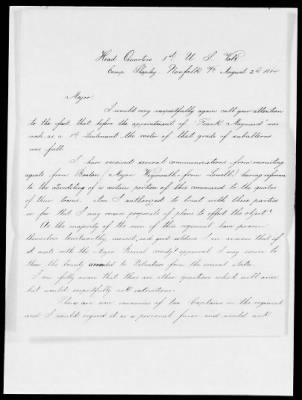 Head Quarters 1st U S Vols
Camp Shepley Norfolk Va August 2d 1864
Major
I would very respectfully again call your attention
to the fact that before the appointment of Frank Maynard was
made as a 1st Lieutenant, the roster of that grade of
was full.
I have received several communications from recruiting
agents from Boston (Major Weymouth from Lowell) having reference
to the of a certain portion of this command to the quotas
of their towns. Am I authorized to treat with these parties
so far that I may receive proposals of plans to effect the object?
As the majority of the men of this regiment have proven
themselves trustworthy, and good soldiers I am anxious that if
it meets with the Major General Comdg approval I may secure to
them the bounty awarded to Volunteers from the several states.
I am fully aware that there are other questions which will arise
but would respectfully ask instructions.
There are now vacancies of two Captains in the regiment
and I would regard it as a personal favor and would ask